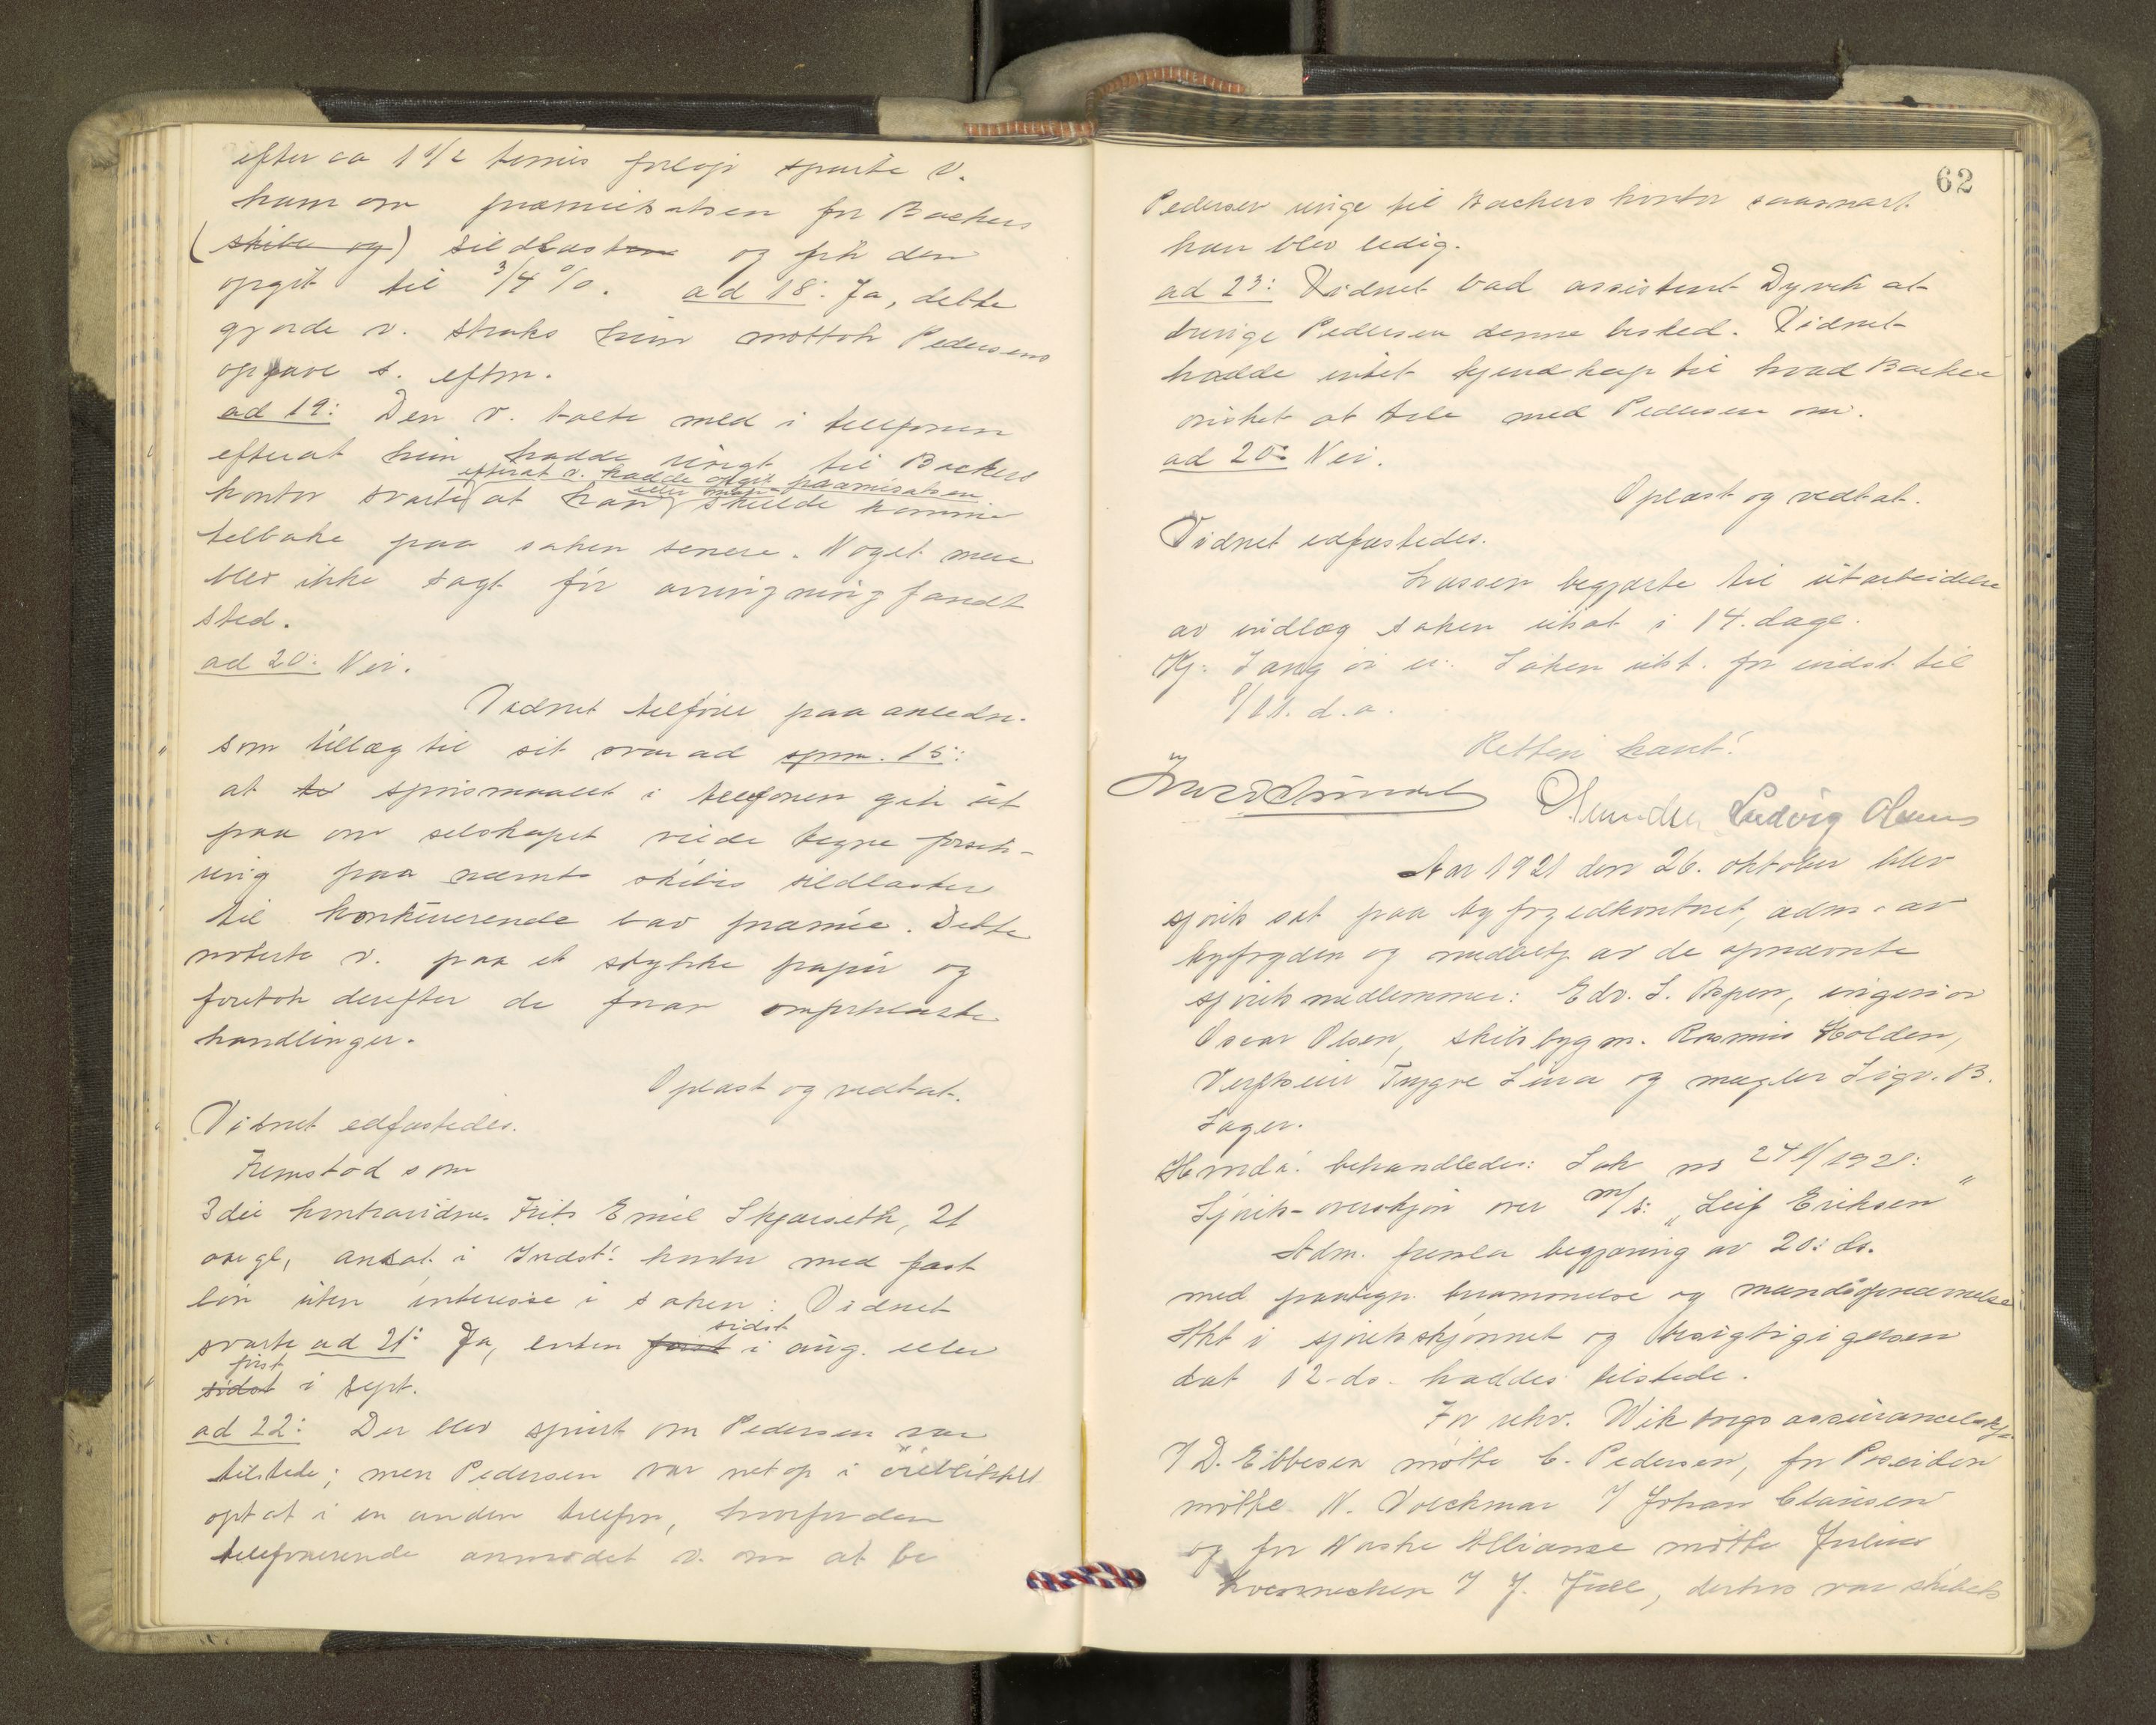 efter ca 1 1/2 times forløp spurte v.
ham om præmiesatsen for Backers
(skibe og) sildlaster og fik den
opgit til 3/4 %. ad 18: Ja, dette
gjorde v. straks hun mottok Pedersens
opgave s. eftm.
ad 19: Den v. talte med i telefonen
efterat hun hadde ringt til Backers
efterat v. hadde opgit præmiesatsen
kontor svarte at han eller man skulde komme
tilbake paa saken senere. Noget mere
blev ikke sagt før avringning fandt
sted.
ad 20: Nei.
Vidnet tilføier paa anledn.
som tillæg til sit svar ad spm. 15:
at spørsmaalet i telefonen gik ut
paa om selskapet vilde tegne forsik-
ring paa nævnte skibis sildlaster
til konkurerende lav præmie. Dette
noterte v. paa et stykke papir og
foretok derefter de foran omforklarte
handlinger.
Oplæst og vedtat.
Vidnet edfæstedes.
Fremstod som
3die kontravidne Frits Emil Skjæseth, 21
aar gl, ansat i Indst! kontor med fast
løn uten interesse i saken: Vidnet
svarte ad 21: Ja, enten først sidst i aug. eller
først
sidst i sept.
ad 22: Der blev spurt om Pedersen var
tilstede; men Pedersen var netop i øieblikket
optat i en anden telefon, hvorfor den
telefonerende anmodet v. om at be
62
Pedersen ringe til Backers kontor saasnart
han blev ledig.
ad 23: Vidnet bad assistent Dyvik at
bringe Pedersen denne besked. Vidnet
hadde intet kjendskap til hvad Backer
ønsket at tale med Pedersen om.
ad 20: Nei.
Oplæst og vedtat.
Vidnet edfæstedes.
Lassen begjærte til utarbeidelse
av indlæg saken utsat i 14. dage.
Kj: Saken uts. for indst. til
9/11. d.a.
Retten hævet!
Ludvig Olsens
Aar 1921 den 26. oktober blev
sjøret sat paa byfogedkontoret, adm. av
byfogden og medbetj. av de opnævnte
sjøretsmedlemmer: Edv. S. Aspen, ingeniør
Oscar Olsen, skibsbygm. Rasmus Holden,
Verftseier Trygve Liura og megler Sigv. B.
Lager.
Hvorda: behandledes: Sak nr 271/1921:
Sjørets-overskjøn over m/s: „Leif Eriksen"
Adm. fremla begjæring av 20: ds.
med paategn. berammelse og mandsopnævnelse
Akt i sjøretsskjønnet og besigtigigelsen
dat 12-ds. haddes tilstede.
For rekv. Wikings assurancelskp.
I D. Ebbesen møtte C. Pedersen, for Poseidon
møtte N. Volckmar I Johan Clausen
og for Norske Alliance møtte Julius
I J. Juell, derhos var skibets